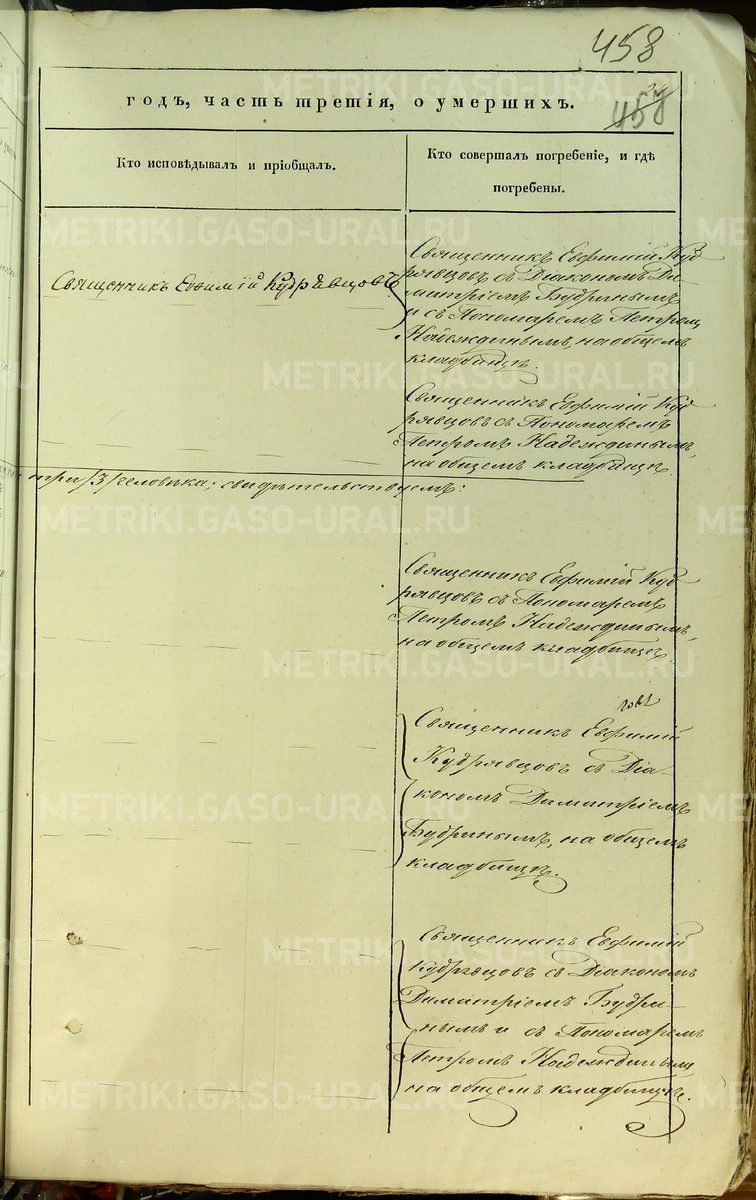 458
458
годъ, часть третія, о умершихъ.
Кто исповѣдывалъ и пріобщалъ.
Кто совершалъ погребеніе, и гдѣ
погребены.
Священникъ Евѳимій Кудрявцовъ
Священникъ Евфимій Куд-
рявцовъ съ Діакономъ Ди-
митріемъ Будринымъ
и съ Пономаремъ Петромъ
Надеждинымъ, на общемъ
кладбищѣ.
Священникъ Евфимій Куд-
рявцовъ съ Пономаремъ
Петромъ Надеждинымъ,
на общемъ кладбищѣ
три /3/ человѣка; свидѣтельствуемъ:
Священникъ Евфимій Куд-
рявцовъ съ Пономаремъ
Петромъ Надеждинымъ,
на общемъ кладбищѣ.
Священникъ Евфимій
Кудрявцовъ съ Діа-
кономъ Димитріемъ
Будринымъ, на общемъ
кладбищѣ.
Священникъ Евфимій
Кудрявцовъ съ Діакономъ
Димитріемъ Будри-
нымъ и съ Пономаремъ
Петромъ Надеждинымъ
на общемъ кладбищѣ.
METRIKI.GASO-URAL.RU